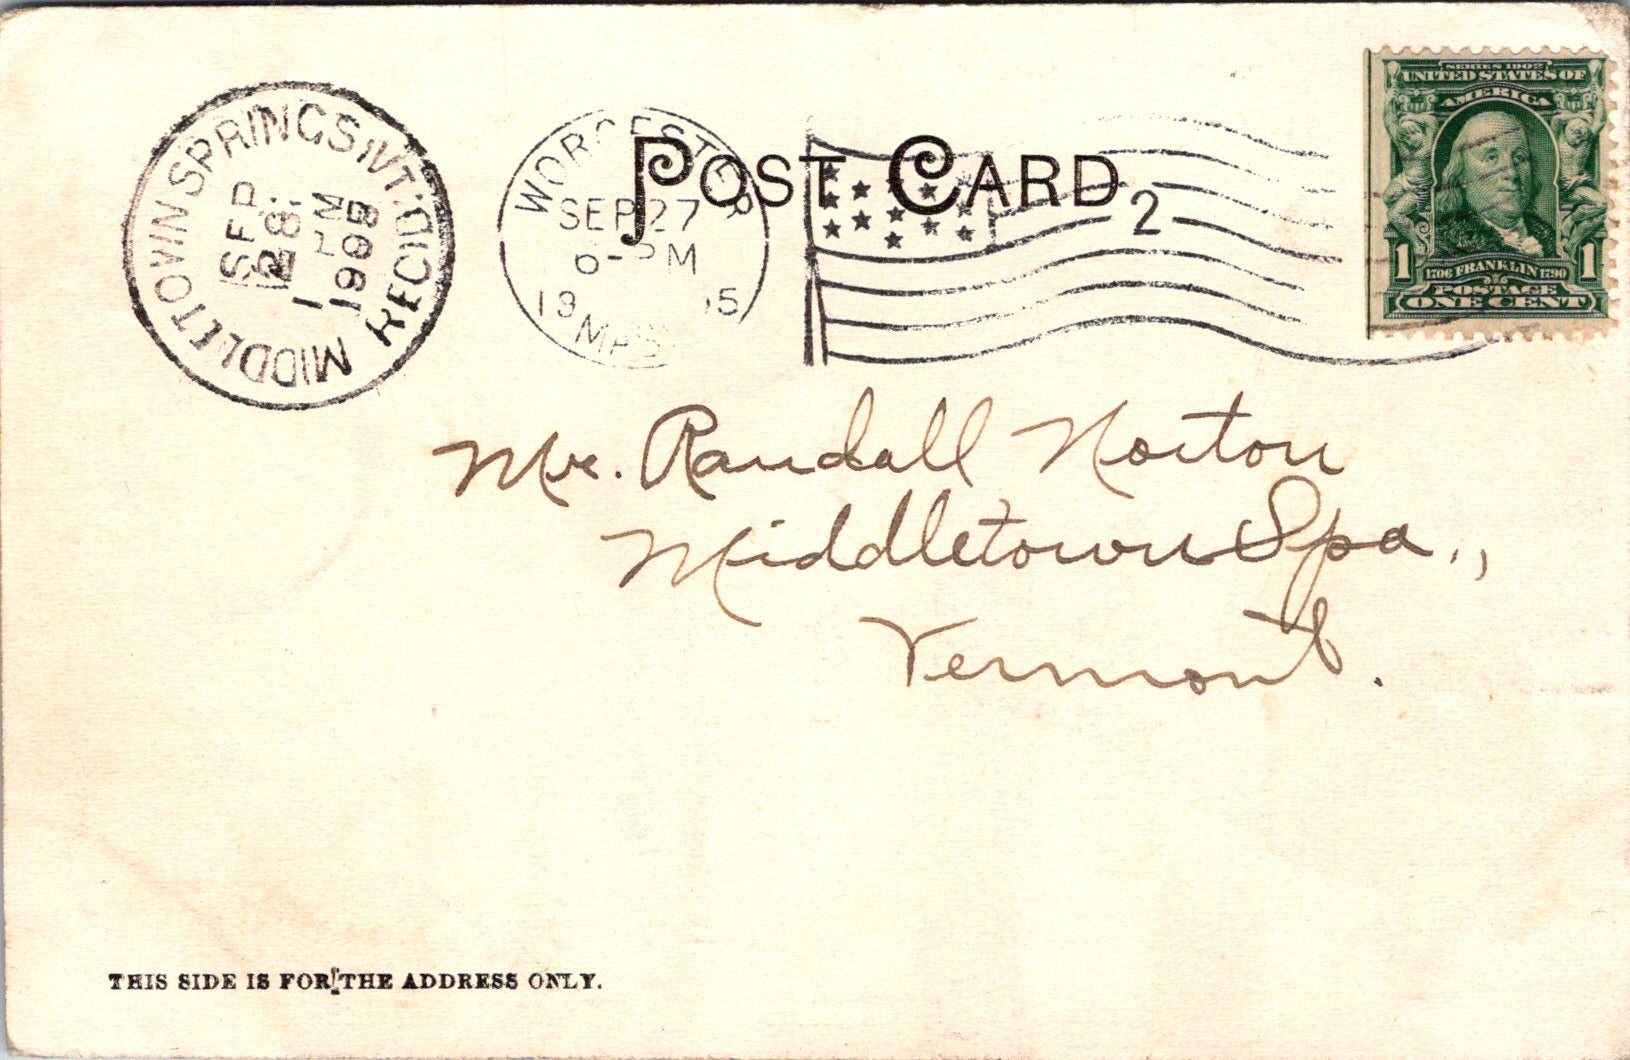 POST CARD
MIDDLETOWN SPRINGS, VT. REC'D.
SEP
28
1 PM
1905
WORCESTER
SEP 27
6-PM
19 05
MASS
2
SERIES 1902
UNITED STATES OF
AMERICA
1 1706 FRANKLIN 1790 1
POSTAGE
ONE CENT
Mr. Randall Norton
Middletown Spa.,
Vermont.
THIS SIDE IS FOR THE ADDRESS ONLY.